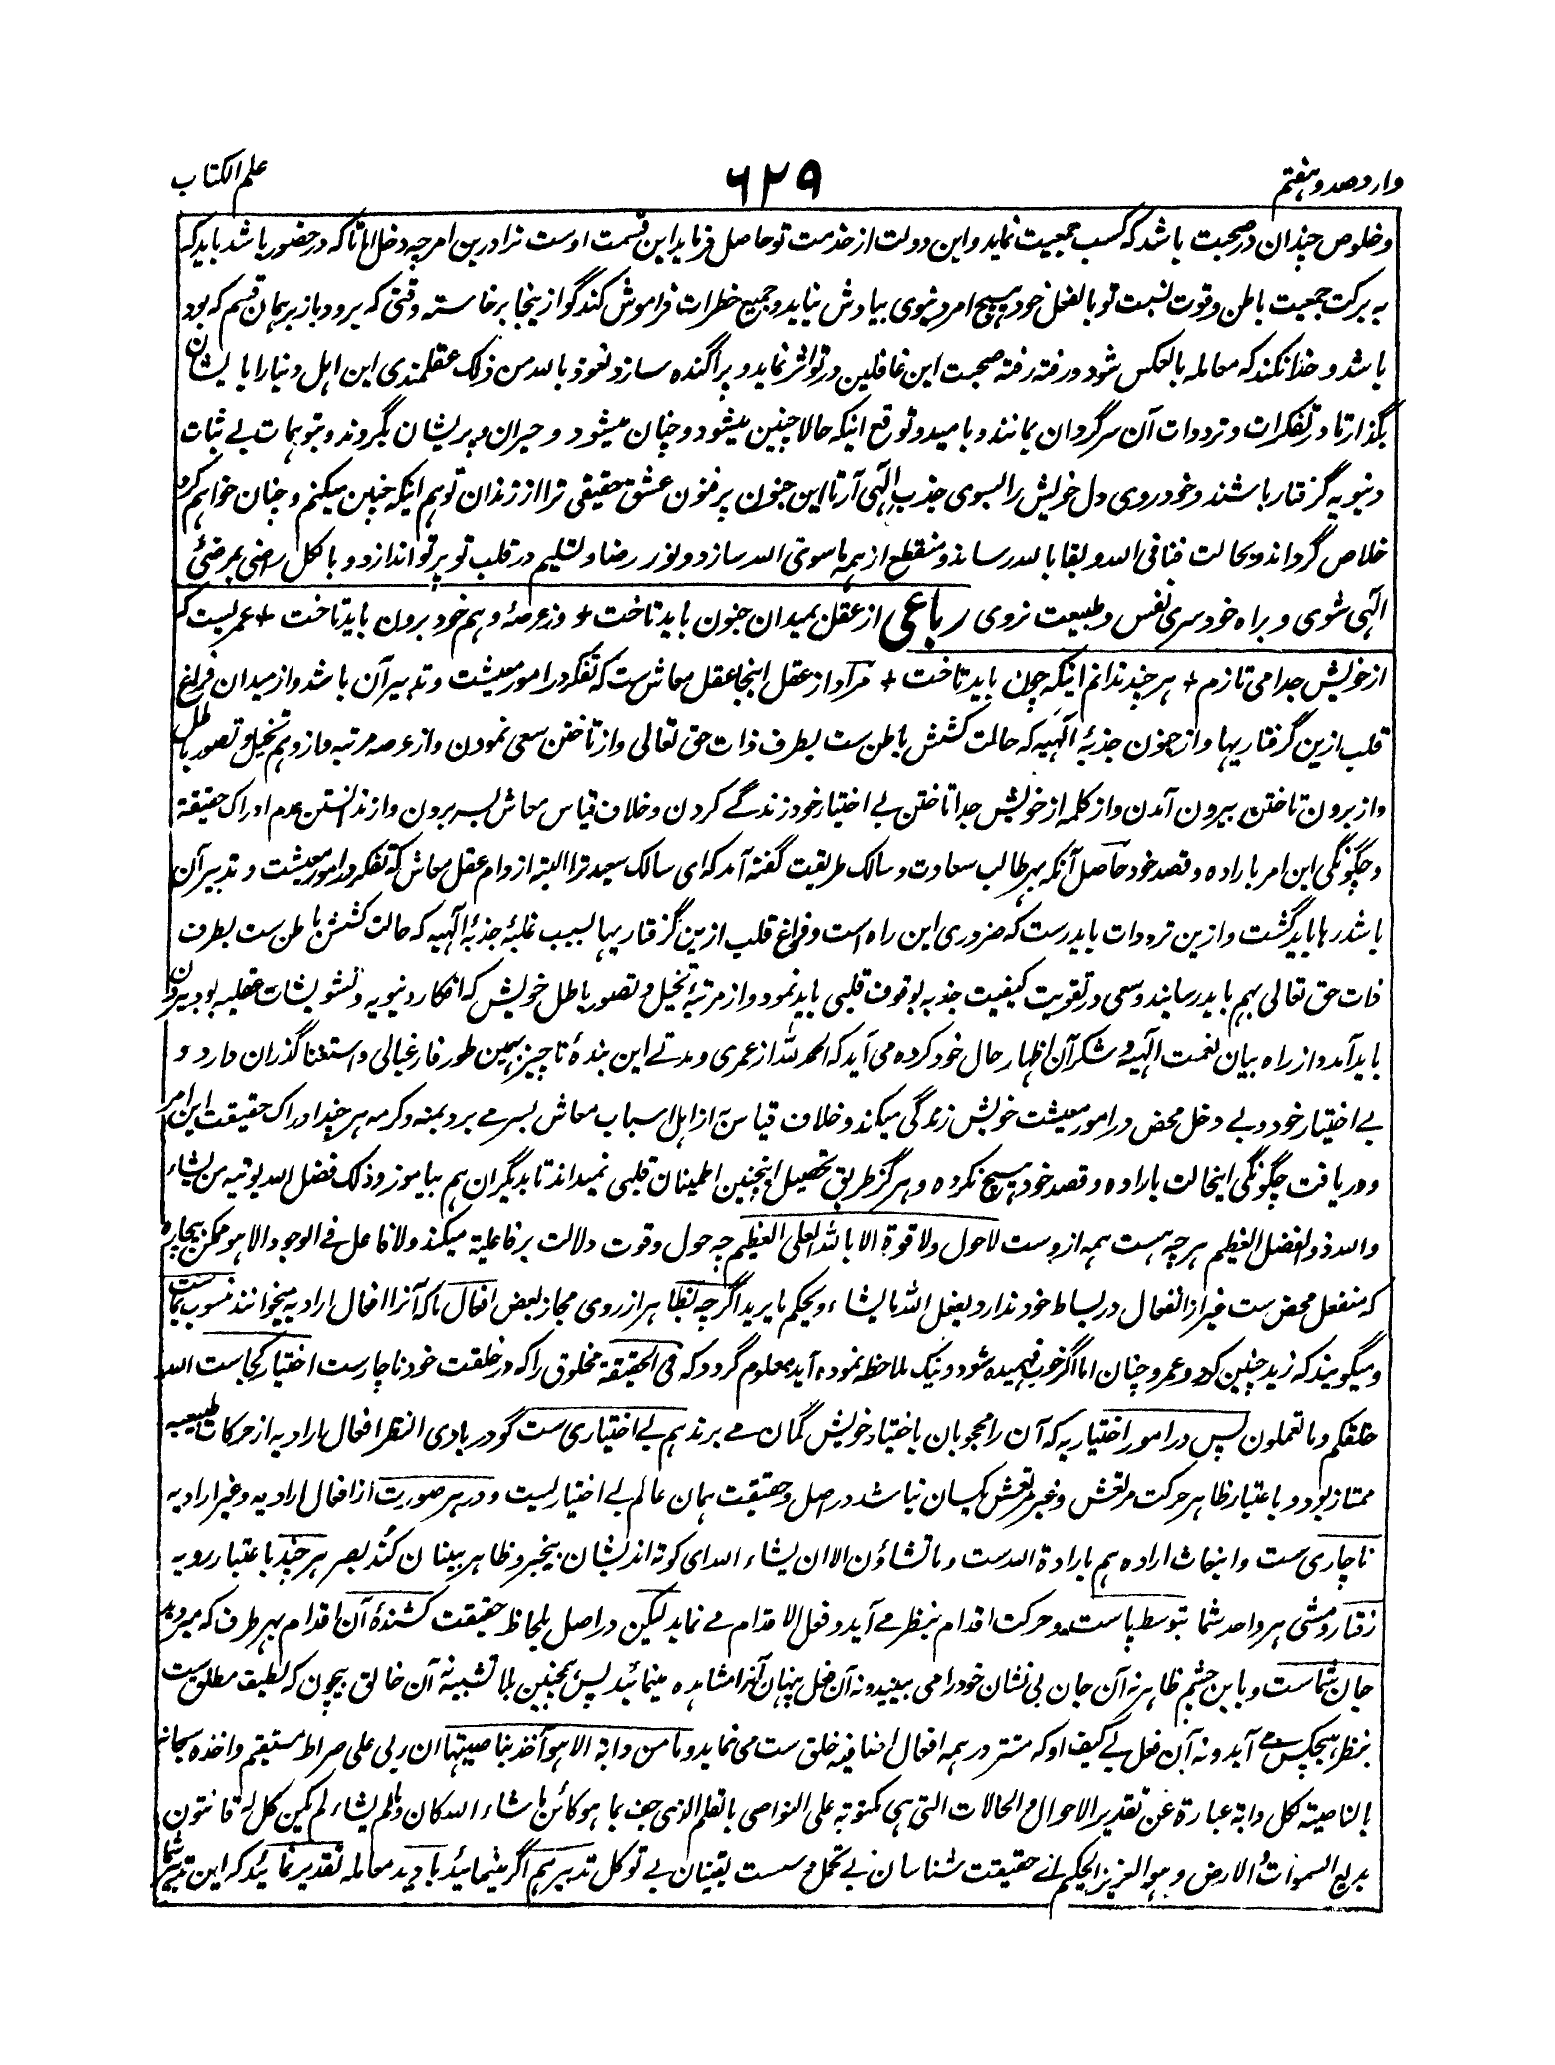 وارد صد و هفتم
۶۲۹
علم الکتاب
و خلوص چندان در صحبت باشد که کسب جمعیت نماید و این دولت از خدمت تو حاصل فرماید این قسمت اوست ترا درین امر چه دخل اما تا که در حضور باشد باید که
به برکت جمعیت باطن و قوت نسبت تو بالفعل خود هیچ امر دنیوی بیادش نیاید و جمیع خطرات فراموش کند گو از ینجا برخاسته وقتی که برود باز بر همان قسم که بود
باشد و خدا نکند که معامله بالعکس شود و رفته رفته صحبت این غافلین در تو اثر نماید و پراگنده سازد نعوذ بالله من ذلک عقلمندی این اهل دنیا را بایشان
بگذار تا در تفکرات و ترددات آن سرگردان بمانند و بامید و توقع اینکه حالا چنین میشود و چنان میشود و حیران و پریشان بگردند و بتوهمات بے ثبات
دنیویه گرفتار باشند و خود روی دل خویش را بسوی جذب الهی آر تا این جنون پر فنون عشق حقیقی ترا از زندان توهم اینکه چنین میکنم و چنان خواهم کرد
خلاص گرداند و بحالت فنا فی الله و بقا بالله رساند و منقطع از همه ماسوی الله سازد و نور رضا و تسلیم در قلب تو پرتو اندازد و بالکل راضی بمرضئ
الهی شوی و براه خودسری نفس و طبیعت نروی رباعی از عقل بمیدان جنون باید تاخت + وز عرصهٔ وهم خود برون باید تاخت + عمریست که
از خویش جدا می تازم + هر چند ندانم اینکه چون باید تاخت + مراد از عقل اینجا عقل معاش ست که تفکر در امور معیشت و تدبیر آن باشد و از میدان فراغ
قلب ازین گرفتاریها و از جنون جذبهٔ الهیه که حالت کشش باطن ست بطرف ذات حق تعالی و از تاختن سعی نمودن و از عرصه مرتبه و از وهم تخیل و تصور باطل
و از برون تاختن بیرون آمدن و از کلمه از خویش جدا تاختن بے اختیار خود زندگے کردن و خلاف قیاس معاش بسر بردن و از ندانستن عدم ادراک حقیقة
و چگونگی این امر باراده و قصد خود حاصل آنکه بهر طالب سعادت و سالک طریقت گفته آمد که ای سالک سعید ترا البته از دام عقل معاش که تفکر در امور معیشت و تدبیر آن
باشد رها باید گشت و ازین ترددات باید رست که ضروری این راه است و فراغ قلب ازین گرفتاریها بسبب غلبهٔ جذبهٔ الهیه که حالت کشش باطن ست بطرف
ذات حق تعالی بهم باید رسانید و سعی در تقویت کیفیت جذبه بوقوف قلبی باید نمود و از مرتبهٔ تخیل و تصور باطل خویش که افکار دنیویه و تشویشات عقلیه بود بیرون
باید آمد و از راه بیان نعمت الهیه و شکر آن اظهار حال خود کرده می آید که الحمد لله از عمری و مدتے این بندهٔ ناچیز بهمین طور فارغبالی و استغنا گذران دارد و
بے اختیار خود و بے دخل محض در امور معیشت خویش زندگی میکند و خلاف قیاس از اهل اسباب معاش بسر مے برد بمنه و کرمه هر چند ادراک حقیقت این امر
و دریافت چگونگی اینحالت باراده و قصد خود هیچ نکرده و هرگز طریق تحصیل اینچنین اطمینان قلبی نمیداند تا بدیگران هم بیاموزد و ذلک فضل الله یوتیه من یشاء
والله ذو الفضل العظیم هر چه هست همه ازوست لاحول ولا قوة الا بالله العلی العظیم چه حول و قوت دلالت بر فاعلیة میکند و لا فاعل فے الوجود الا هو ممکن بیچاره
که منفعل محض ست غیر از انفعال در بساط خود ندارد یفعل الله ما یشاء و یحکم ما یرید اگر چه بظاهر از روی مجاز بعض افعال را که آنرا افعال ارادیه میخوانند منسوب بماست
و میگویند که زید چنین کرد و عمرو چنان اما اگر خوب فهمیده شود و نیک ملاحظه نموده آید معلوم گردد که فی الحقیقة مخلوق را که در خلقت خود ناچارست اختیار کجاست الله
خلقکم و ما تعملون پس در امور اختیاریه که آن را محجوبان باختیار خویش گمان مے برند هم بے اختیاری ست گو در بادی النظر افعال ارادیه از حرکات طبیعیه
ممتاز بود و باعتبار ظاهر حرکت مرتعش و غیر مرتعش یکسان نباشد در اصل و حقیقت همان عالم بے اختیاریست و در هر صورت از افعال ارادیه و غیر ارادیه
ناچاری ست و انبعاث اراده هم بارادة الله ست و ما تشاؤن الا ان یشاء الله ای کوته اندیشان بیخبر و ظاهر بینان کند بصر هر چند باعتبار رویه
رفتار و مشی هر واحد شما بتوسط پاست و حرکت اقدام بنظر مے آید و فعل الاقدام مے نماید لیکن در اصل بلحاظ حقیقت کشندهٔ آن اقدام بهر طرف که میروید
جان شماست و باین چشم ظاهر نه آن جان بی نشان خود را می بینید و نه آن فعل پنهان آنرا مشاهده مینمائید پس همچنین بلا تشبیه نه آن خالق بیچون که لطیف مطلق ست
بنظر هیچکس مے آید و نه آن فعل بے کیف او که مستتر در همه افعال اضافیه خلق ست می نماید و ما من دابة الا هو آخذ بناصیتها ان ربی علی صراط مستقیم و اخذه سبحانه
بالناصیة کل دابة عبارة عن تقدیر الاحوال و الحالات التی هی مکتوبة علی النواصی بالقلم الذی جف بما هو کائن ما شاء الله کان و ما لم یشاء لم یکن کل له قانتون
بدیع السموات و الارض و هو العزیز الحکیم اے حقیقت شناسان بے تحمل و سست یقینان بے توکل تدبیر هم اگر مینمائید با دید معامله تقدیر نمائید که این تدبیر شما